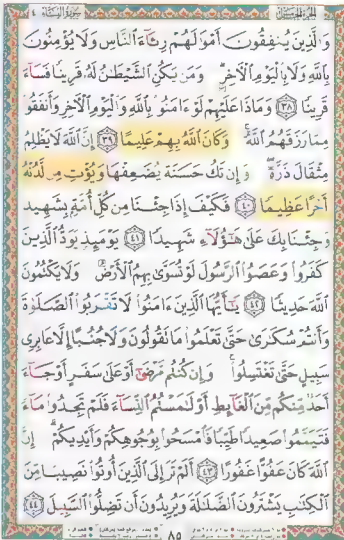 الجزء الخامس
سورة النساء ٤
وَالَّذِينَ يُنفِقُونَ أَمْوَالَهُمْ رِئَاءَ النَّاسِ وَلَا يُؤْمِنُونَ
بِاللَّهِ وَلَا بِالْيَوْمِ الْآخِرِ وَمَن يَكُنِ الشَّيْطَانُ لَهُ قَرِينًا فَسَاءَ
قَرِينًا ٣٨ وَمَاذَا عَلَيْهِمْ لَوْ ءَامَنُوا بِاللَّهِ وَالْيَوْمِ الْآخِرِ وَأَنفَقُوا
مِمَّا رَزَقَهُمُ اللَّهُ وَكَانَ اللَّهُ بِهِمْ عَلِيمًا ٣٩ إِنَّ اللَّهَ لَا يَظْلِمُ
مِثْقَالَ ذَرَّةٍ وَإِن تَكُ حَسَنَةً يُضَاعِفْهَا وَيُؤْتِ مِن لَّدُنْهُ
أَجْرًا عَظِيمًا ٤٠ فَكَيْفَ إِذَا جِئْنَا مِن كُلِّ أُمَّةٍ بِشَهِيدٍ
وَجِئْنَا بِكَ عَلَىٰ هَٰؤُلَاءِ شَهِيدًا ٤١ يَوْمَئِذٍ يَوَدُّ الَّذِينَ
كَفَرُوا وَعَصَوُا الرَّسُولَ لَوْ تُسَوَّىٰ بِهِمُ الْأَرْضُ وَلَا يَكْتُمُونَ
اللَّهَ حَدِيثًا ٤٢ يَا أَيُّهَا الَّذِينَ ءَامَنُوا لَا تَقْرَبُوا الصَّلَوٰةَ
وَأَنتُمْ سُكَارَىٰ حَتَّىٰ تَعْلَمُوا مَا تَقُولُونَ وَلَا جُنُبًا إِلَّا عَابِرِي
سَبِيلٍ حَتَّىٰ تَغْتَسِلُوا وَإِن كُنتُم مَّرْضَىٰ أَوْ عَلَىٰ سَفَرٍ أَوْ جَاءَ
أَحَدٌ مِّنكُم مِّنَ الْغَائِطِ أَوْ لَامَسْتُمُ النِّسَاءَ فَلَمْ تَجِدُوا مَاءً
فَتَيَمَّمُوا صَعِيدًا طَيِّبًا فَامْسَحُوا بِوُجُوهِكُمْ وَأَيْدِيكُمْ إِنَّ
اللَّهَ كَانَ عَفُوًّا غَفُورًا ٤٣ أَلَمْ تَرَ إِلَى الَّذِينَ أُوتُوا نَصِيبًا مِّنَ
الْكِتَابِ يَشْتَرُونَ الضَّلَالَةَ وَيُرِيدُونَ أَن تَضِلُّوا السَّبِيلَ ٤٤
٨٥